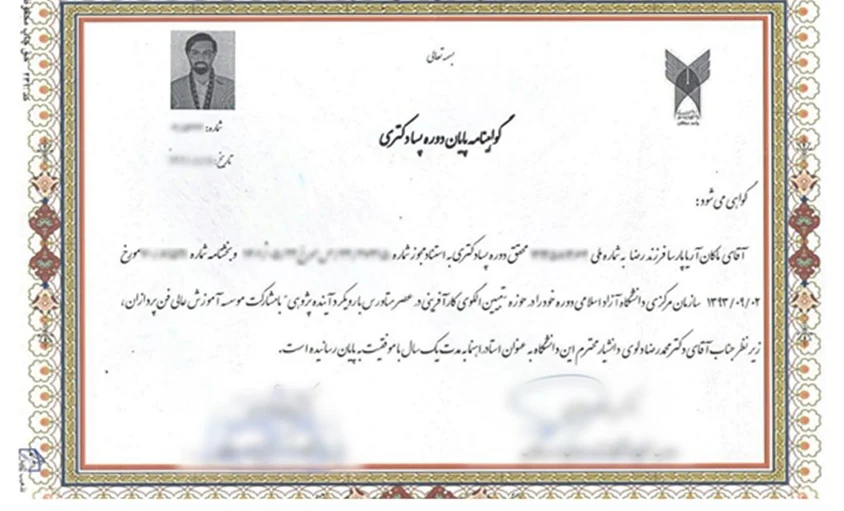 بسمه تعالی
گواهینامه پایان دوره پسا دکتری
شماره:
تاریخ:
گواهی می شود:
آقای ماکان آریا پارسا فرزند رضا به شماره ملی محقق دوره پسا دکتری به استناد مجوز شماره و بخشنامه شماره مورخ
۱۳۹۳/۰۹/۰۲ سازمان مرکزی دانشگاه آزاد اسلامی دوره خود را در حوزه "تبیین الگوی کارآفرینی در عصر متاورس با رویکرد آینده پژوهی" با مشارکت موسسه آموزش عالی فن پردازان،
زیر نظر جناب آقای دکتر محمدرضا دلوی دانشیار محترم این دانشگاه به عنوان استاد راهنما به مدت یک سال با موفقیت به پایان رسانیده است.